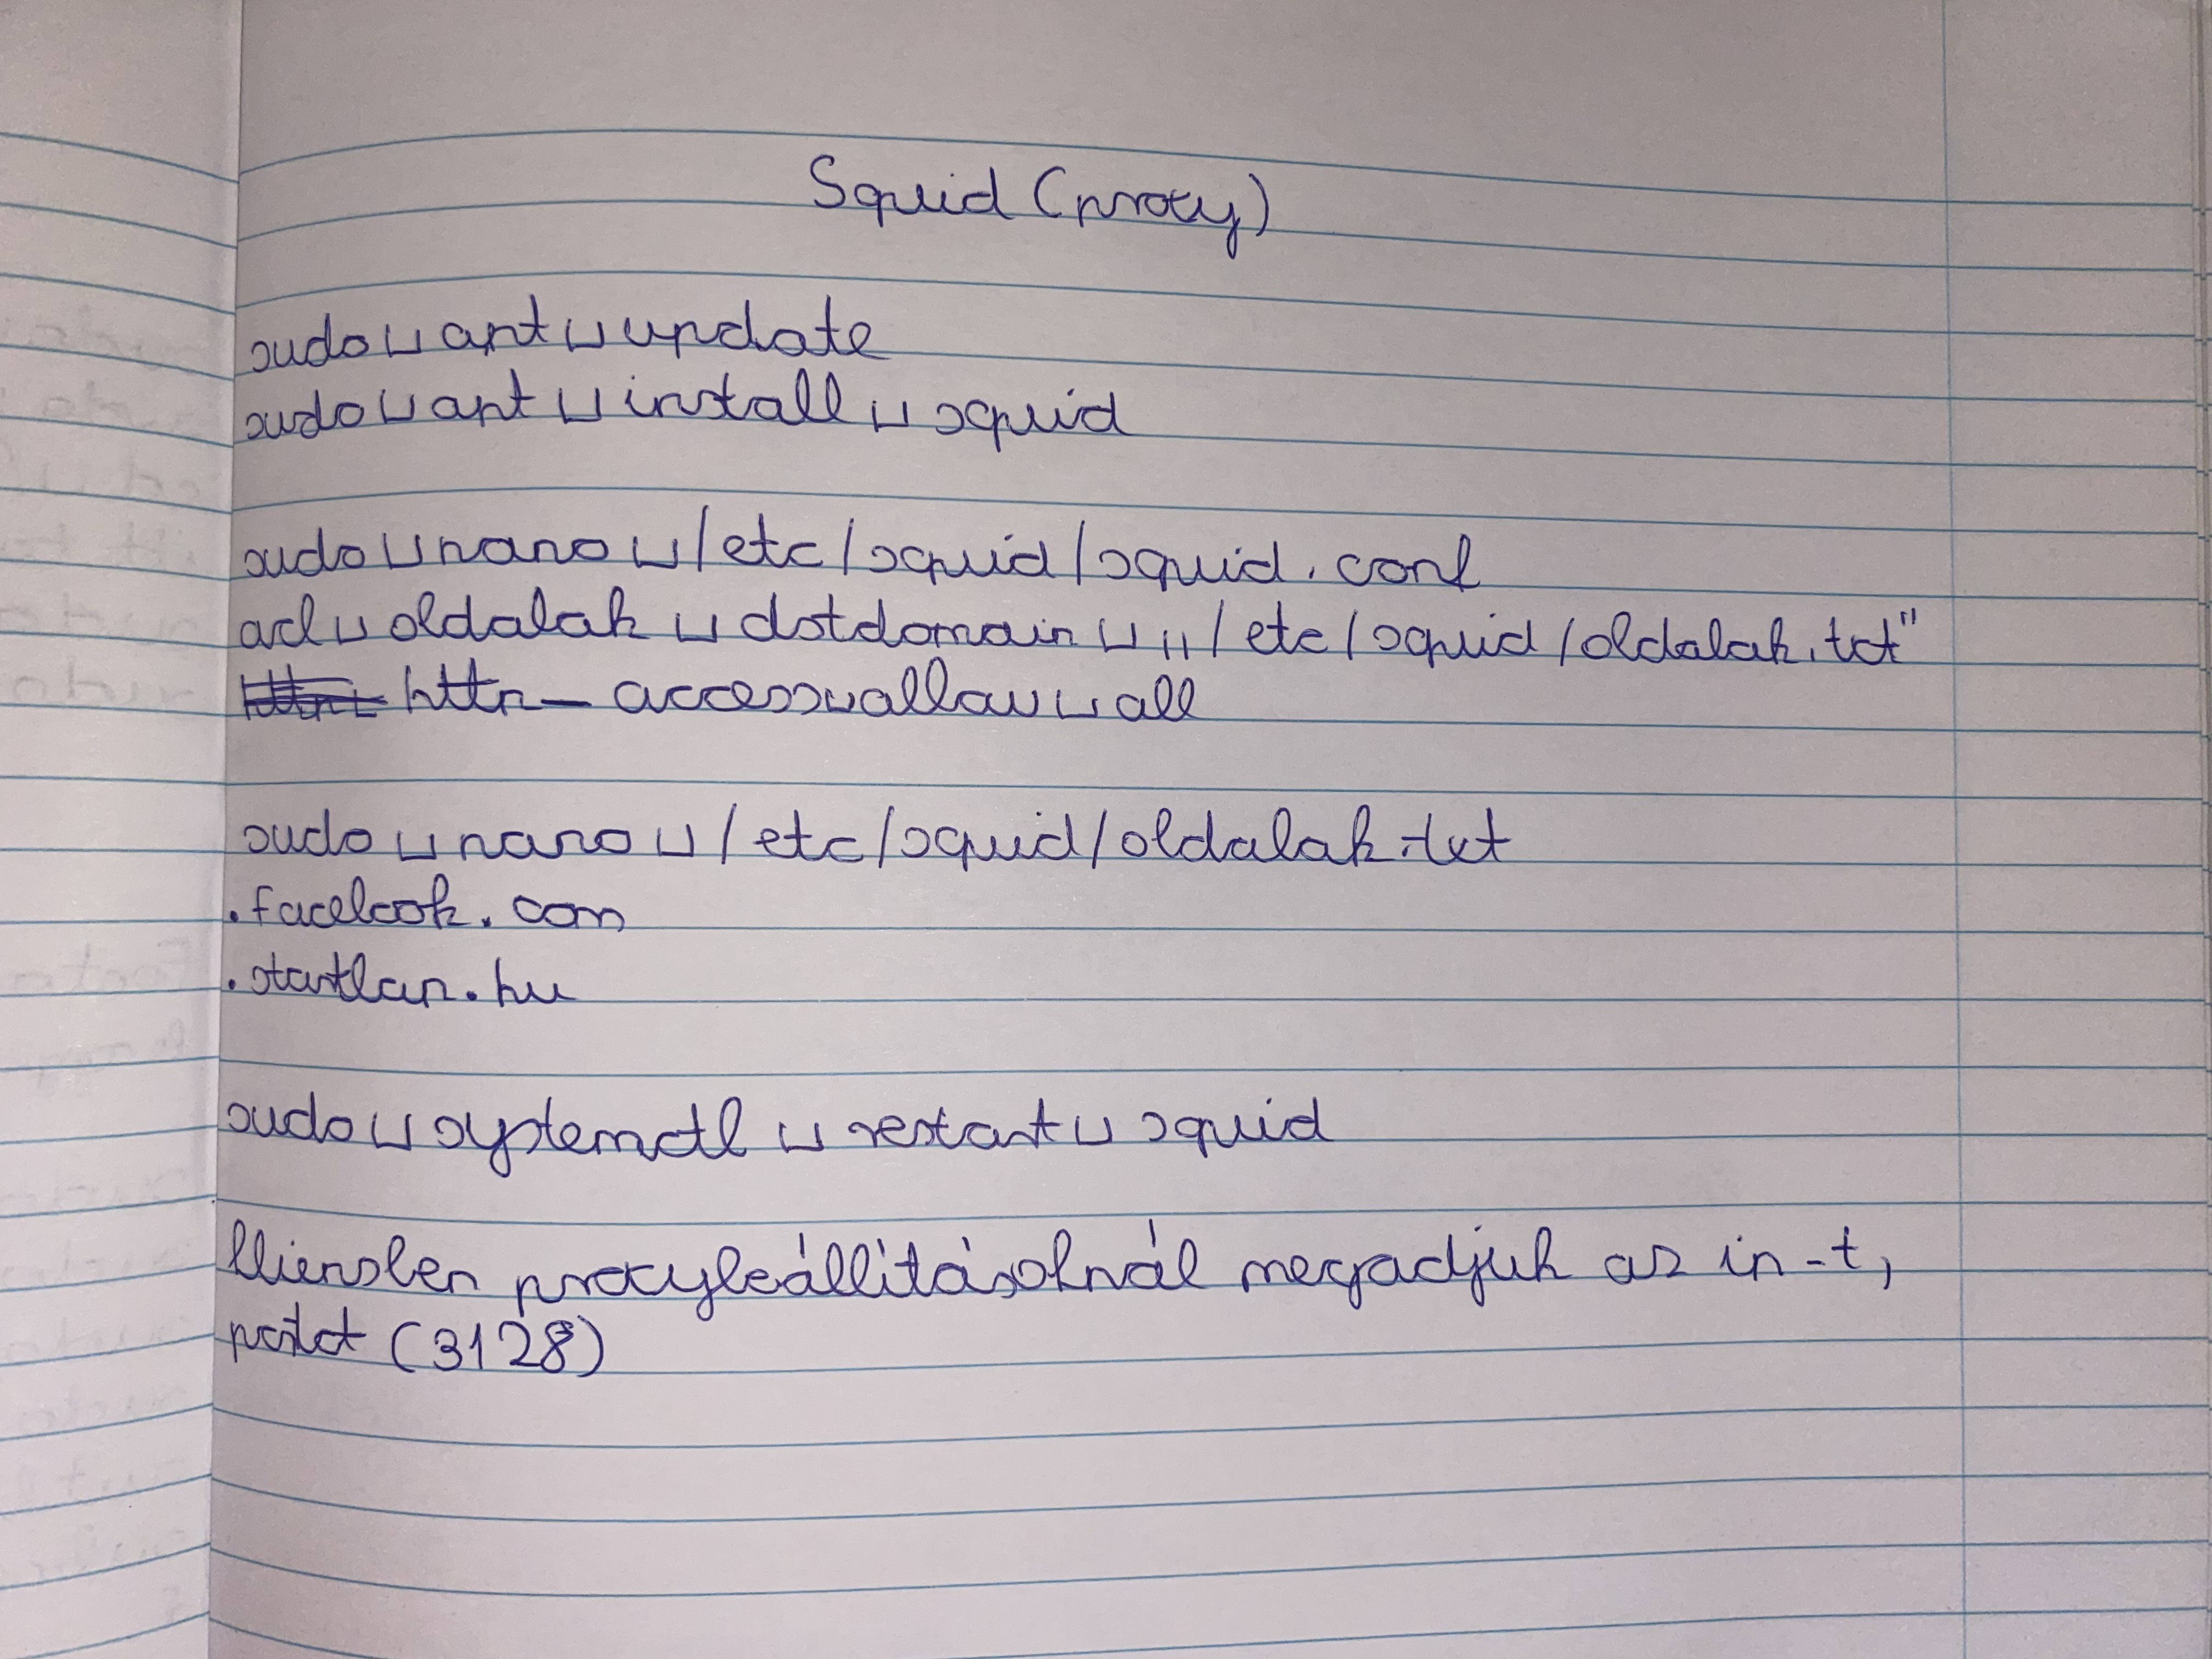 Squid (proxy)
sudo␣apt␣update
sudo␣apt␣install␣squid
sudo␣nano␣/etc/squid/squid.conf
acl␣oldalak␣dstdomain␣"/etc/squid/oldalak.txt"
http_access␣allow␣all
sudo␣nano␣/etc/squid/oldalak.txt
.facebook.com
.startlap.hu
sudo␣systemctl␣restart␣squid
kliensben proxybeállításoknál megadjuk az ip-t,
portot (3128)